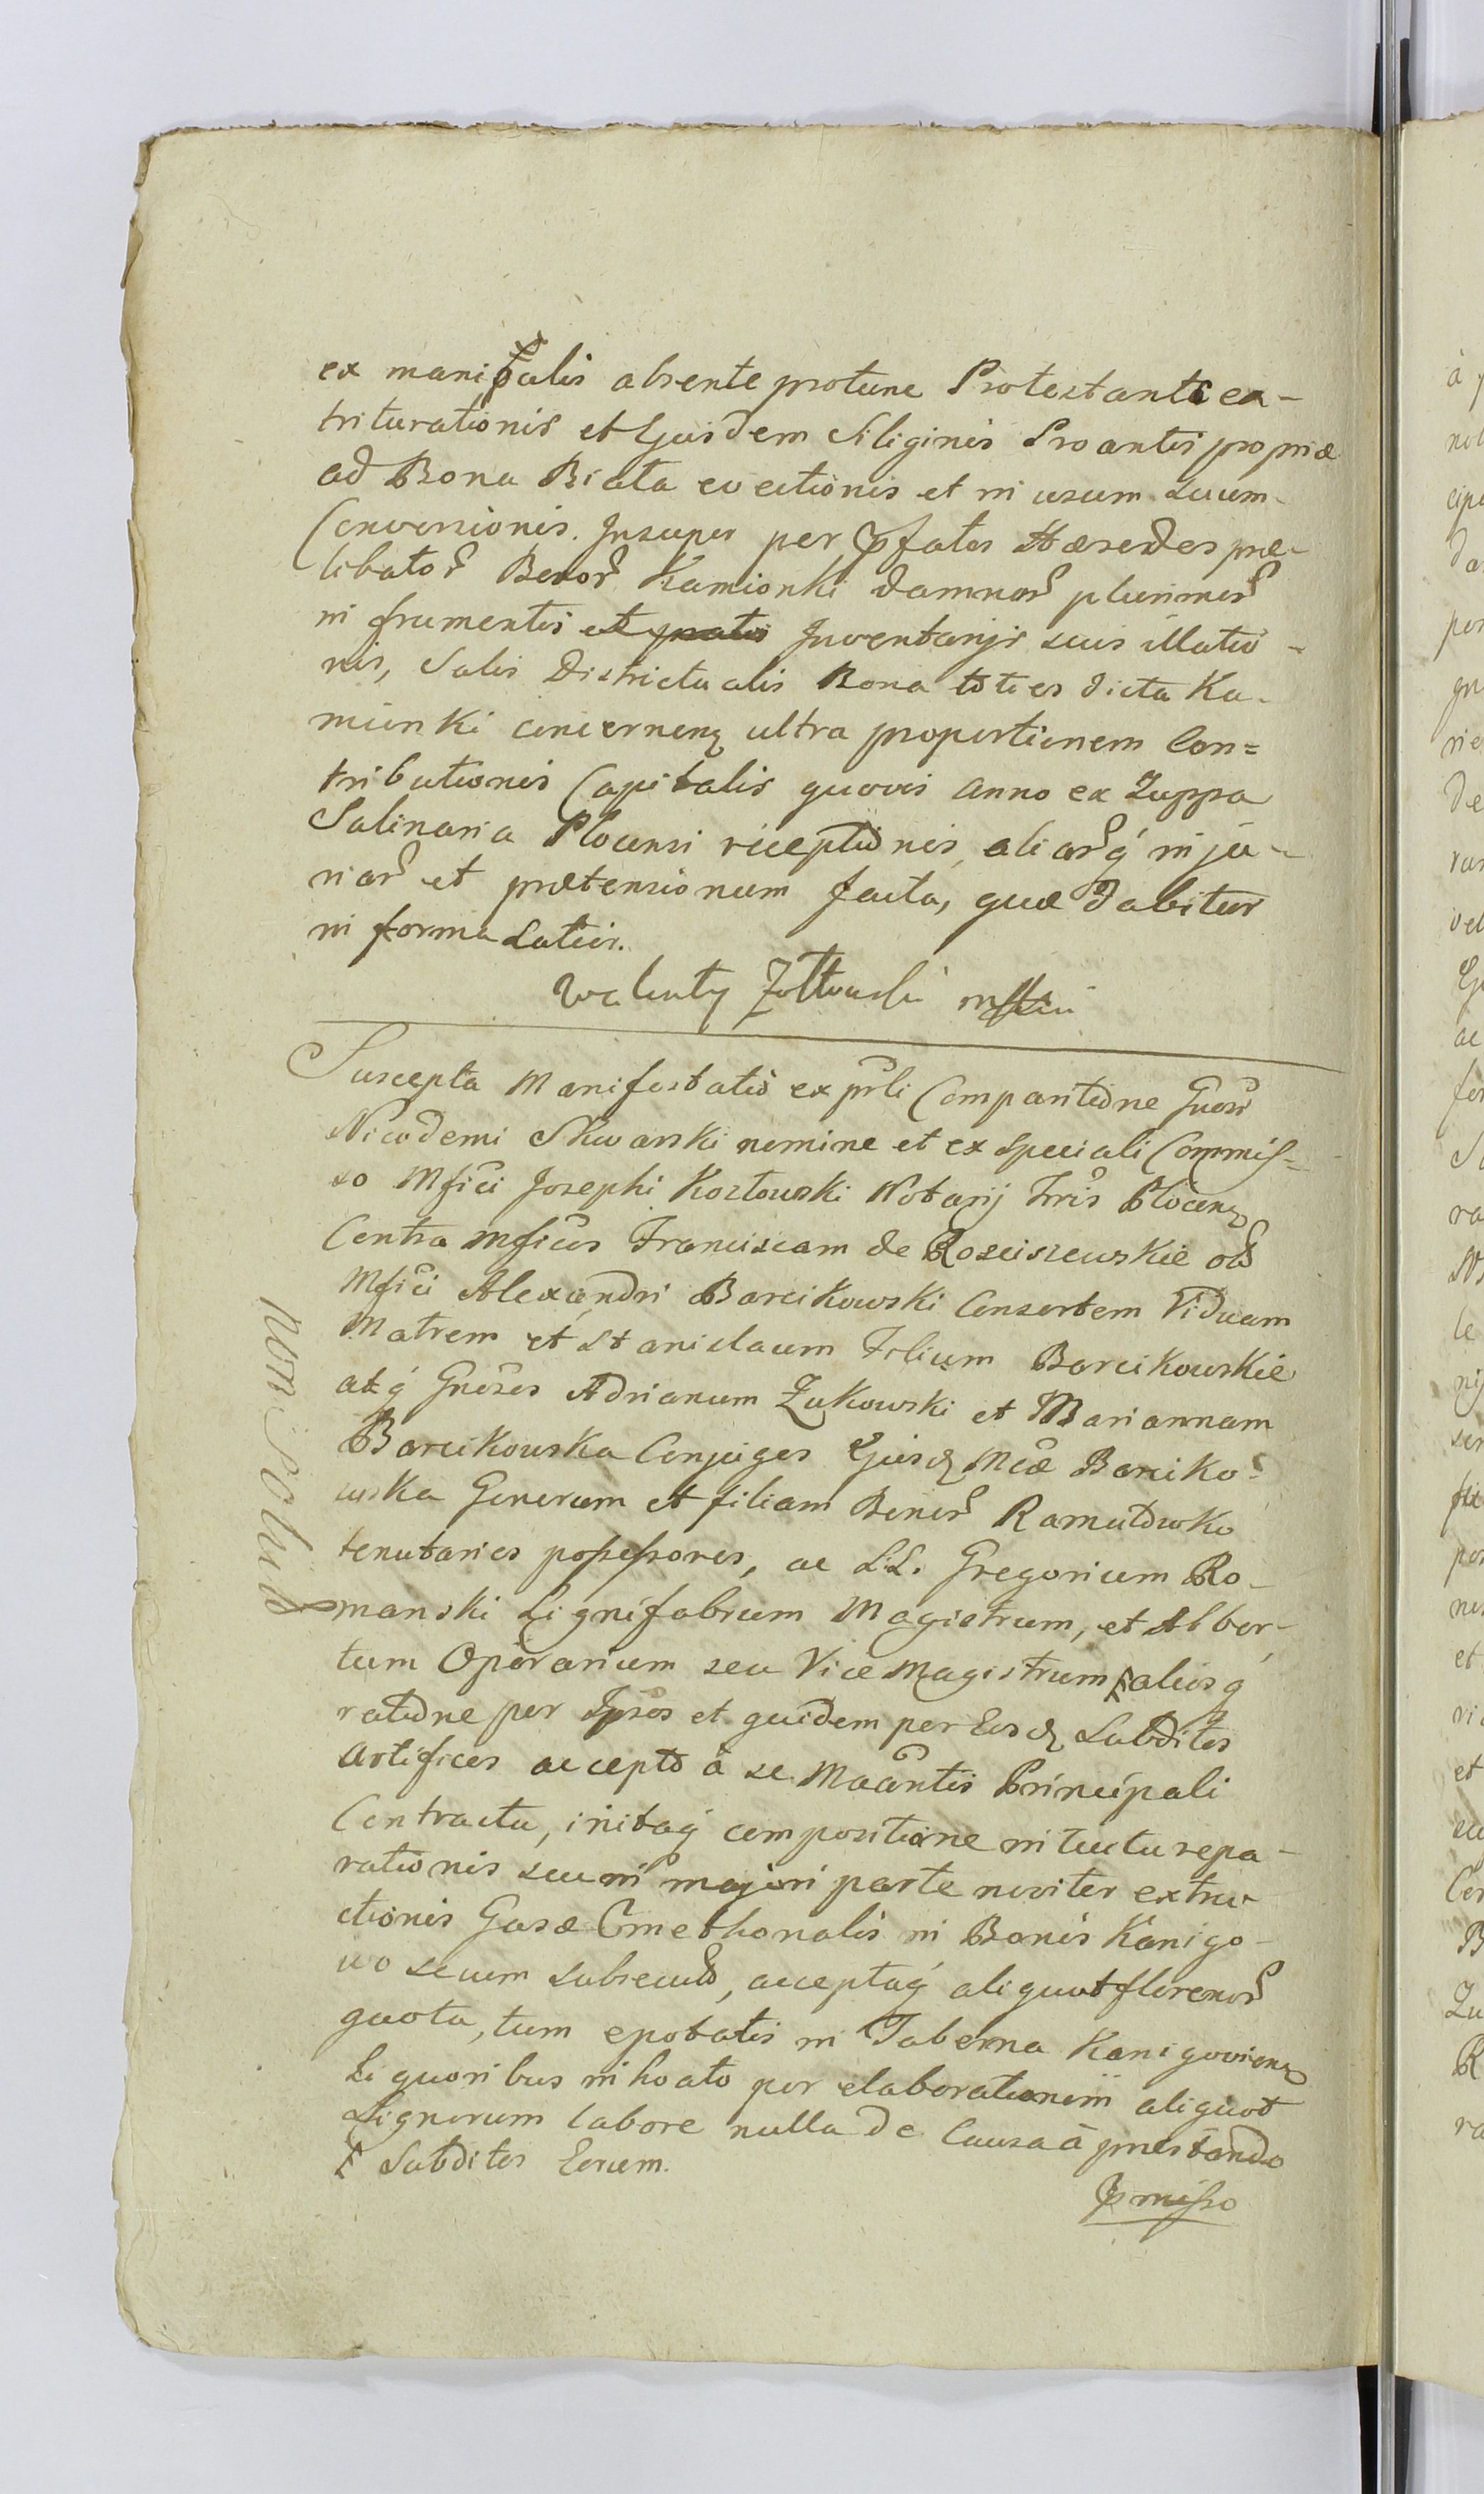 ex manipulis absente protunc Protestante ex-
triturationis et Ejusdem Siliginis Proantis propriæ
ad Bona Biała evectionis et in usum suum
Conversionis. Insuper per pfatos Hæredes præ-
libator Bonor Kamionki damnor plurimor
in frumentis et pratis Inventarijs suis illatio-
nis, Salis Districtualis Bona toties dicta Ka-
mionki concernen ultra proportionem Con=
tributionis Capitalis quovis anno ex Zuppa
Salinaria Plocensi receptionis, aliarq inju-
riar et prætensionum facta, quæ dabitur
in forma Latior.
Walenty Zołtowski
Suscepta Manifestatio ex prli Comparitione Gnosi
Nicodemi Skwarski nomine et ex speciali Commis=
so Mfici Josephi Kozłowski Notarij Trris Plocen
Contra Mficos Franciscam de Rosciszewskie ol
Mfici Alexandri Barcikowski Consortem Viduam
Matrem et Stanislaum Filium Barcikowskie
atq Gnosos Adrianum Zukowski et Mariannam
Barcikowska Conjuges Ejusd Mcæ Barciko-
wska Generum et filiam Bonor Ramutowko
tenutarios possessores, ac LL. Gregorium Ro-
manski Lignifabrum Magistrum, et Alber-
tum Operarium seu Vice Magistrum aliosq
ratione per Ipsos et quidem per Eosd Subditos
Artifices accepto à se Maantis Principali
Contractu, initaq compositione intuitu repa-
rationis seu in majori parte noviter extru-
ctionis Casæ Cmethonalis in Bonis Kanigo-
wo secum subsecuto, acceptaq aliquot florenor
quota, tum epotatis in Taberna Kanigovien
Liquoribus inhoato per elaborationem aliquot
Lignorum labore nulla de Causa à præstando
Subditos Eorum.
pmisso
Non Solut